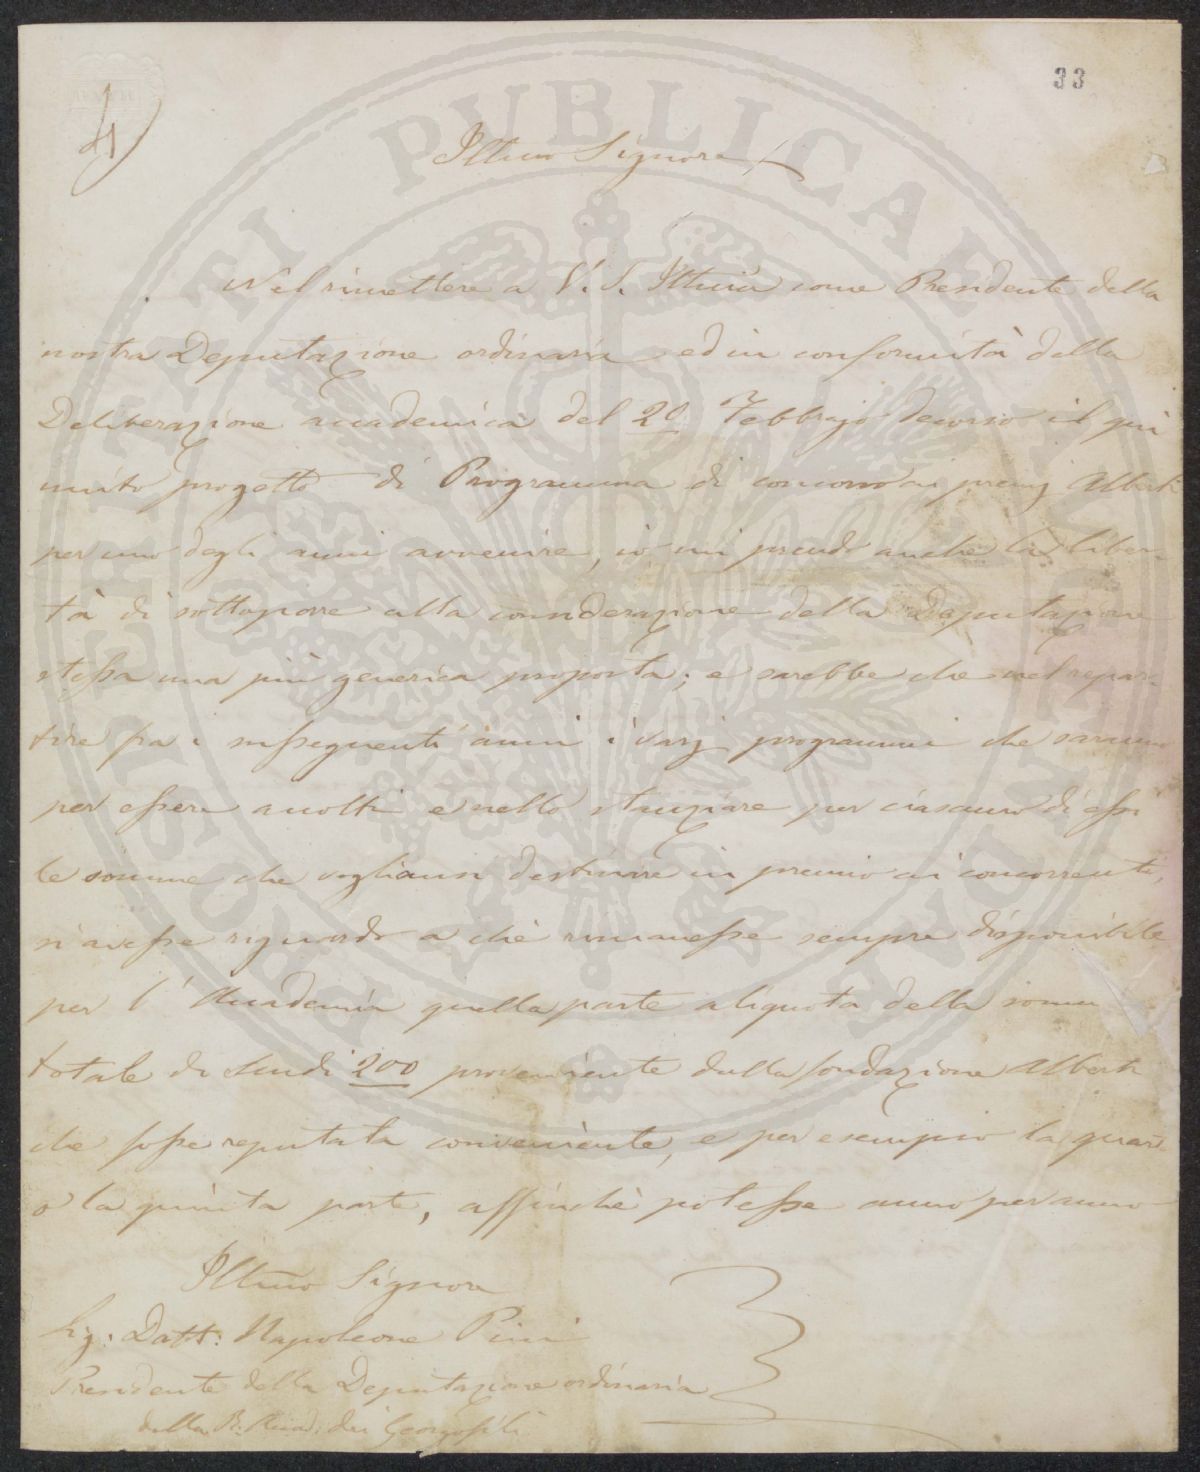 33
4
Illmo Signore
Nel rimettere a V. S. Illma come Presidente della
nostra Deputazione ordinaria ed in conformità della
Deliberazione accademica del 20 Febbrajo decorso il qui
unito progetto di Programma di concorso ai premj Alberti
per uno degli anni avvenire, io mi prendo anche la liber-
tà di sottoporre alla considerazione della Deputazione
stessa una più generica proposta; e sarebbe che nel repar-
tire fra i susseguenti anni i varj programmi che saranno
per essere accolti e nello stanziare per ciascuno di essi
le somme che vogliansi destinare in premio ai concorrenti,
si avesse riguardo a che rimanesse sempre disponibile
per l'Accademia quella parte aliquota della somma
totale di Scudi 200 proveniente dalla fondazione Alberti
che fosse reputata conveniente, e per esempio la quarta
o la quinta parte, affinchè potesse anno per anno
Illmo Signore
Sig: Dott: Napoleone Pini
Presidente della Deputazione ordinaria
della R. Accad. dei Georgofili
PROSPERITATI PUBLICAE AUGENDAE